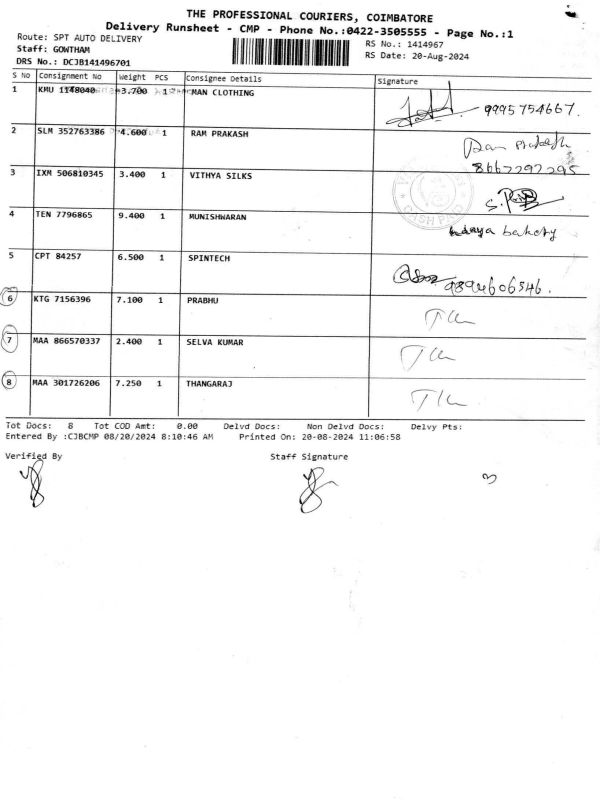 THE PROFESSIONAL COURIERS, COIMBATORE
Delivery Runsheet - CMP - Phone No.:0422-3505555 - Page No.:1
Route: SPT AUTO DELIVERY
RS No.: 1414967
Staff: GOWTHAM
RS Date: 20-Aug-2024
DRS No.: DCJB141496701
S No Consignment No Weight PCS Consignee Details Signature
1 KMU 1148040 3.700 1 CMAN CLOTHING 9995754667.
2 SLM 352763386 4.600 1 RAM PRAKASH Ram Prakash
8667297295
3 IXM 506810345 3.400 1 VITHYA SILKS
CASH PAID
4 TEN 7796865 9.400 1 MUNISHWARAN udaya bakery
5 CPT 84257 6.500 1 SPINTECH 9894606546.
6 KTG 7156396 7.100 1 PRABHU
7 MAA 866570337 2.400 1 SELVA KUMAR
8 MAA 301726206 7.250 1 THANGARAJ
Tot Docs: 8 Tot COD Amt: 0.00 Delvd Docs: Non Delvd Docs: Delvy Pts:
Entered By :CJBCMP 08/20/2024 8:10:46 AM Printed On: 20-08-2024 11:06:58
Verified By Staff Signature
3